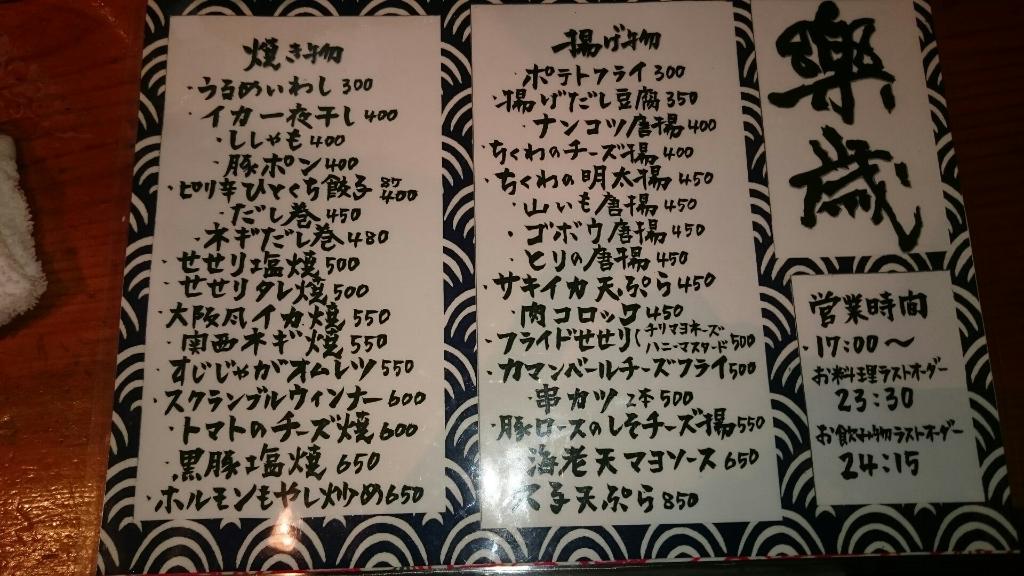 焼き物
・うるめいわし 300
・イカ一夜干し 400
・ししゃも 400
・豚ポン 400
・ピリ辛ひとくち餃子 8ケ 400
・だし巻 450
・ネギだし巻 480
・せせり塩焼 500
・せせりタレ焼 500
・大阪風イカ焼 550
・関西ネギ焼 550
・すじじゃがオムレツ 550
・スクランブルウィンナー 600
・トマトのチーズ焼 600
・黒豚塩焼 650
・ホルモンもやし炒め 650
揚げ物
・ポテトフライ 300
・揚げだし豆腐 350
・ナンコツ唐揚 400
・ちくわのチーズ揚 400
・ちくわの明太揚 450
・山いも唐揚 450
・ゴボウ唐揚 450
・とりの唐揚 450
・サキイカ天ぷら 450
・肉コロッケ 450
・フライドせせり(チリマヨネーズ ハニーマスタード 500
・カマンベールチーズフライ 500
・串カツ 2本 500
・豚ロースのしそチーズ揚 550
・海老天マヨソース 650
天ぷら 850
楽歳
営業時間
・17:00〜
お料理ラストオーダー
23:30
お飲み物ラストオーダー
24:15